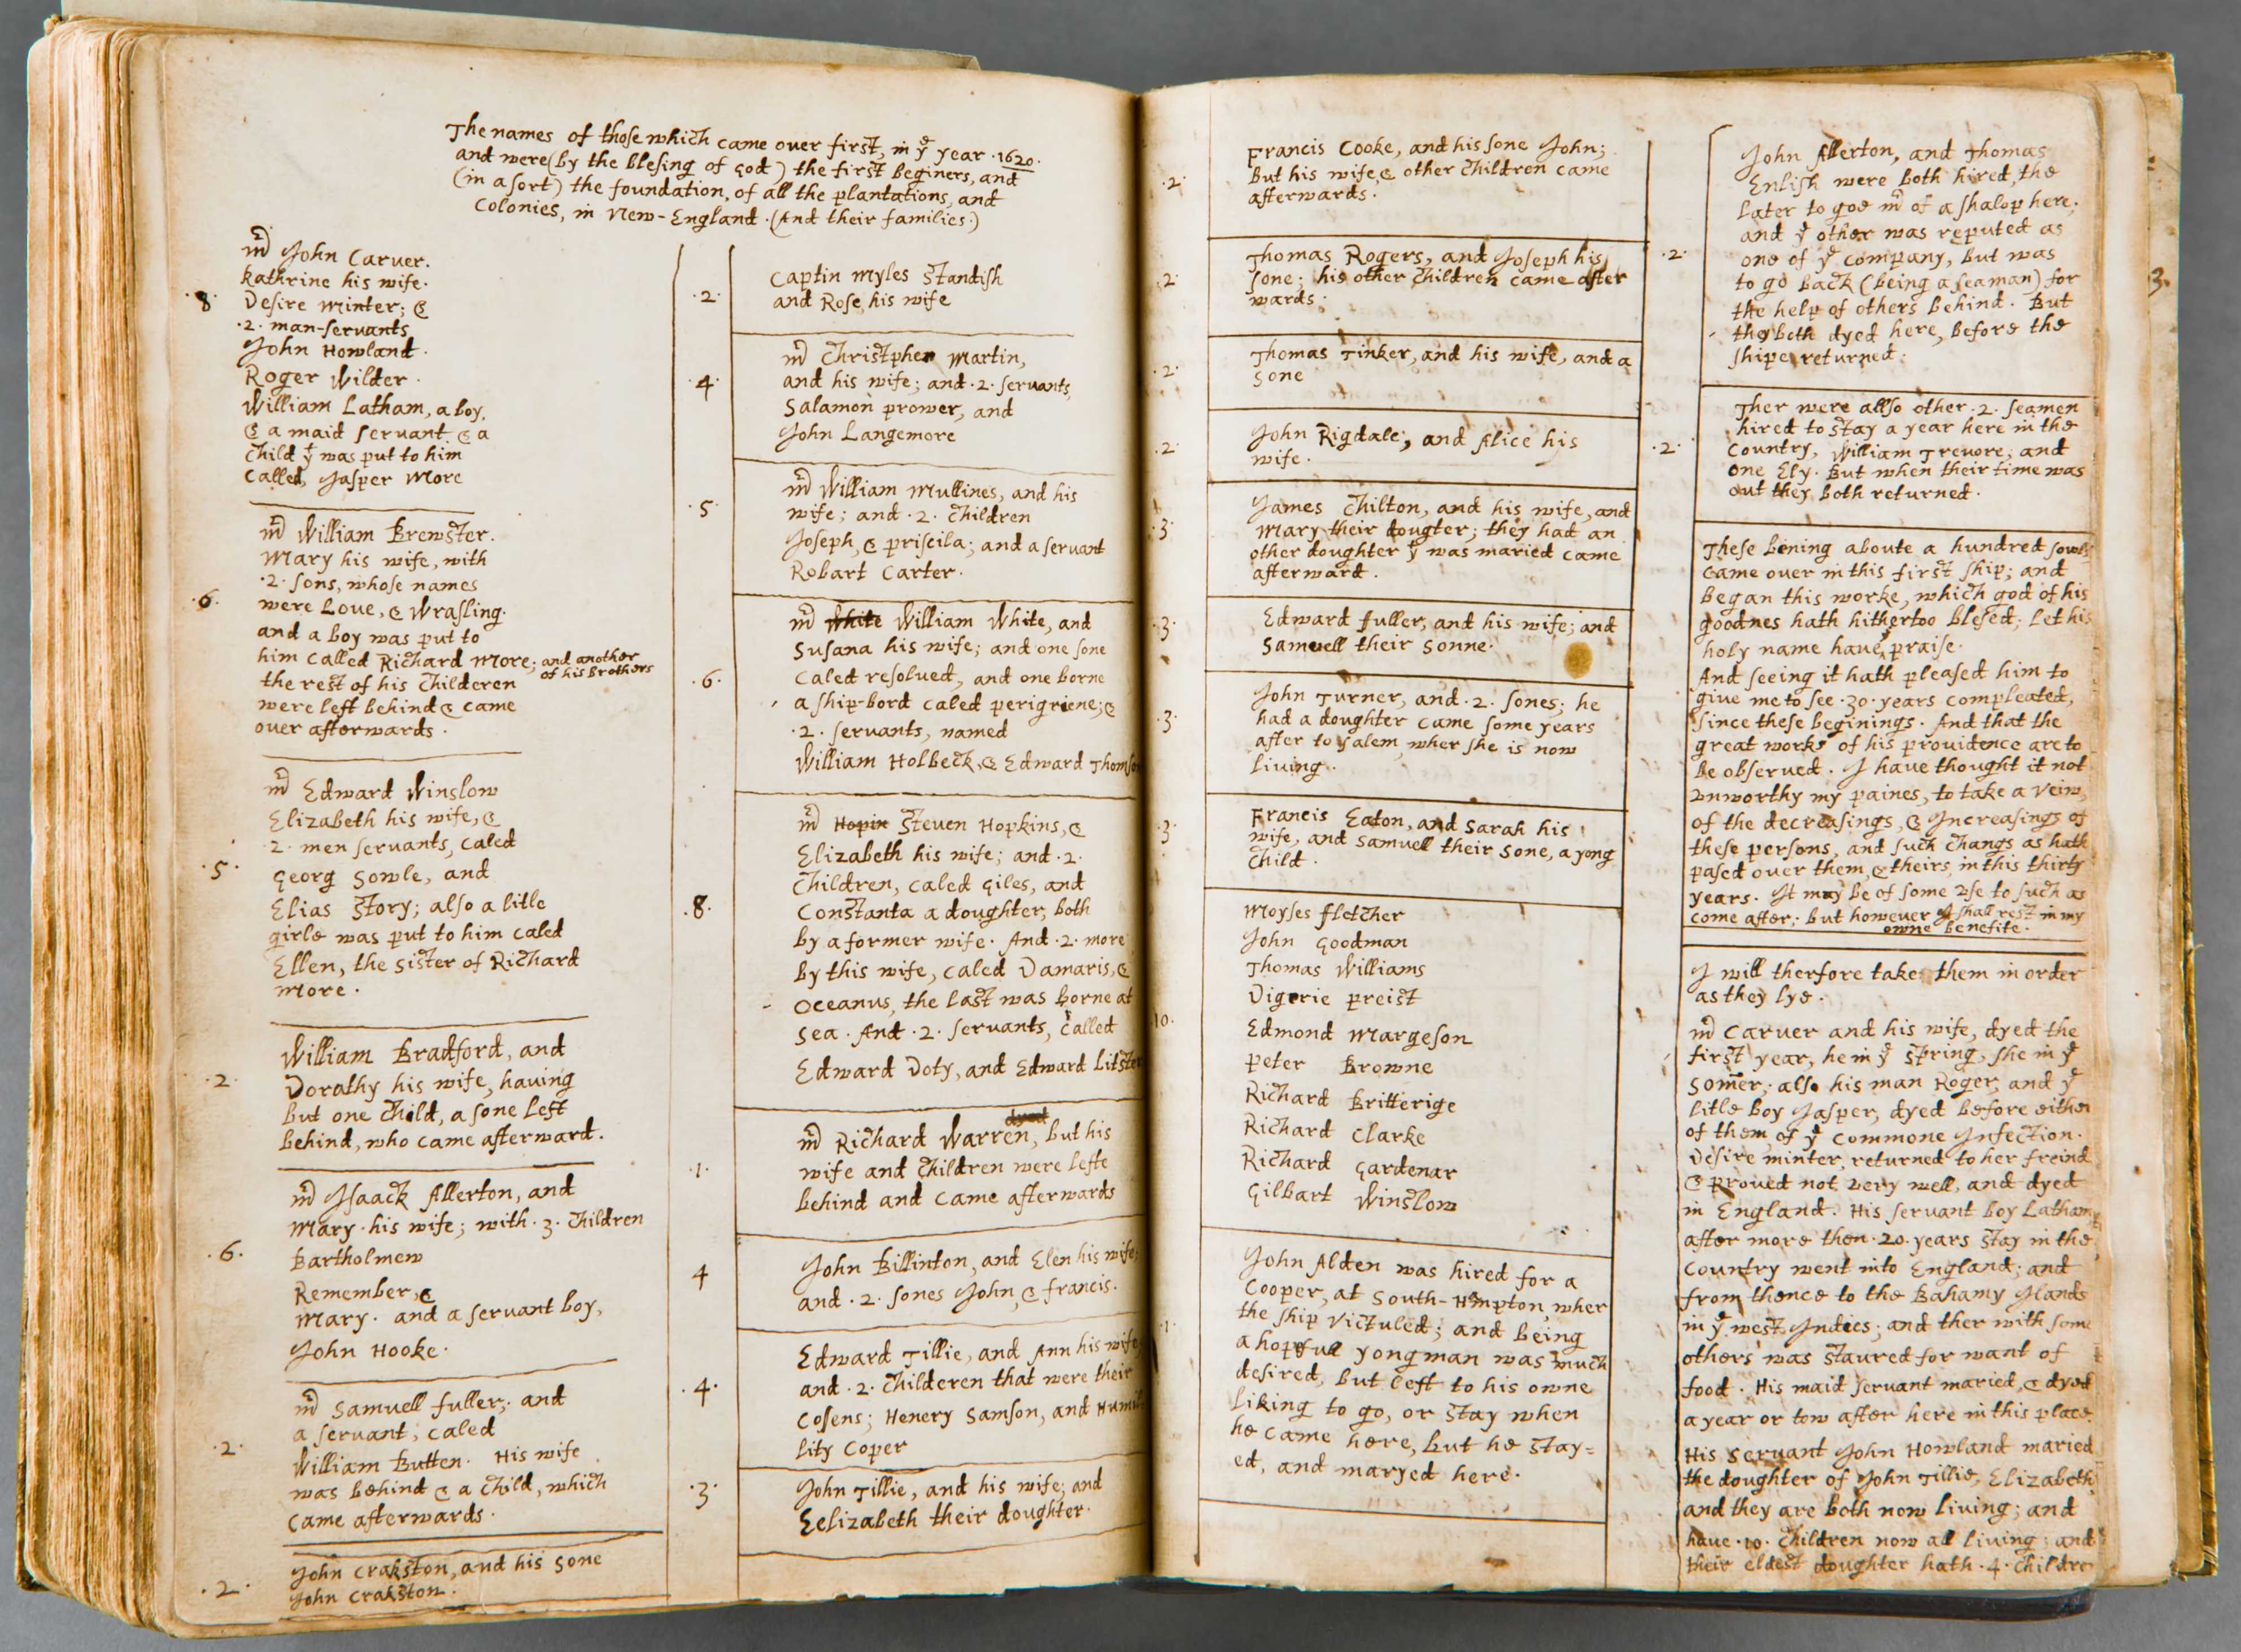 The names of those which came over first, in yͤ year ·1620·
and were (by the blesing of god) the first beginers, and
(in a sort) the foundation, of all the plantations, and
Colonies, in New-England. (And their families.)
·8·
mʳ John Carver.
kathrine his wife.
Desire Minter; &
·2· man-servants
John Howland.
Roger Wilder.
William Latham, a boy.
& a maid servant. & a
child yᵗ was put to him
called, Jasper More
·6·
mʳ William Brewster.
Mary his wife, with
·2· sons, whose names
were Love, & Wrasling.
and a boy was put to
him called Richard More; and another
of his brothers
the rest of his childeren
were left behind & came
over afterwards.
·5·
mʳ Edward Winslow
Elizabeth his wife, &
·2· men servants, caled
Georg Sowle, and
Elias Story; also a litle
girle was put to him caled
Ellen, the sister of Richard
More.
·2·
William Bradford, and
Dorathy his wife, having
but one child, a sone left
behind, who came afterward.
·6·
mʳ Isaack Allerton, and
Mary his wife; with ·3· children
Bartholmew
Remember, &
Mary. and a servant boy,
John Hooke.
·2·
mʳ Samuell fuller; and
a servant, caled
William Butten. His wife
was behind & a child, which
came afterwards.
·2·
John Crakston, and his sone
John Crakston.
·2·
Captin Myles Standish
and Rose, his wife
·4·
mʳ Christpher Martin,
and his wife; and ·2· servants,
Salamon prower, and
John Langemore
·5·
mʳ William Mullines, and his
wife; and ·2· children
Joseph, & priscila; and a servant
Robart Carter.
·6·
mʳ White William White, and
Susana his wife; and one sone
caled resolved, and one borne
a ship-bord caled perigriene; &
·2· servants, named
William Holbeck, & Edward Thomson
·8·
mʳ Hopin Steven Hopkins, &
Elizabeth his wife; and ·2·
children, caled Giles, and
Constanta a doughter, both
by a former wife. And ·2· more
by this wife, caled Damaris, &
Oceanus, the last was borne at
sea. And ·2· servants, called
Edward Doty, and Edward Litster
·1·
dyed
mʳ Richard Warren, but his
wife and children were lefte
behind and came afterwards
4
John Billinton, and Elen his wife;
and ·2· sones John, & francis.
·4·
Edward Tillie, and Ann his wife;
and ·2· childeren that were their
cosens; Henery Samson, and Humil
lity Coper
·3·
John Tillie, and his wife; and
Eelizabeth their doughter.
·2·
Francis Cooke, and his sone John;
But his wife, & other children came
afterwards.
·2·
Thomas Rogers, and Joseph his
sone; his other children came after
wards.
·2·
Thomas Tinker, and his wife, and a
sone
·2·
John Rigdale; and Alice his
wife.
·3·
James Chilton, and his wife, and
Mary their dougter; they had an
other doughter yᵗ was maried came
afterward.
·3·
Edward fuller, and his wife; and
Samuell their sonne.
·3·
John Turner, and ·2· sones; he
had a doughter came some years
after to Salem, wher she is now
living.
·3·
Francis Eaton, and Sarah his
wife, and Samuell their sone, a yong
child.
·10·
Moyses fletcher
John Goodman
Thomas Williams
Digerie preist
Edmond Margeson
Peter Browne
Richard Britterige
Richard Clarke
Richard Gardenar
Gilbart Winslow
·1·
John Alden was hired for a
Cooper, at South-Hampton, wher
the ship victuled; and being
a hopfull yongman was much
desired, but left to his owne
liking to go, or stay when
he came here, but he stay=
ed, and maryed here.
·2·
John Allerton, and Thomas
Enlish were both hired, the
later to goe mʳ of a shalop here;
and yᵉ other was reputed as
one of yᵉ company, but was
to go back (being a seaman) for
the help of others behind. But
they both dyed here, before the
shipe returned.
·2·
Ther were allso other ·2· seamen
hired to stay a year here in the
Country, William Trevore; and
one Ely. But when their time was
out they both returned.
These bening aboute a hundred sowls
came over in this first ship; and
began this worke, which god of his
goodnes hath hithertoo blesed; let his
holy name have yᵉ praise.
And seeing it hath pleased him to
give me to see ·30· years compleated,
since these beginings. And that the
great works of his providence are to
be observed. I have thought it not
unworthy my paines, to take a veiw
of the decreasings, & Increasings of
these persons, and such changs as hath
pased over them, & theirs, in this thirty
years. It may be of some use to such as
come after; but however I shall rest in my
owne benefite.
I will therfore take them in order
as they lye.
mʳ Carver and his wife, dyed the
first year, he in yᵉ spring, she in yᵉ
somer; also his man Roger, and yᵉ
litle boy Jasper, dyed before either
of them, of yᵉ commone Infection.
Desire Minter, returned to her freind
& proved not very well, and dyed
in England. His servant boy Latham
after more then ·20· years stay in the
Country went into England; and
from thence to the Bahamy Ilands
in yᵉ west Indies; and ther with some
others was starved for want of
food. His maid servant maried, & dyed
a year or tow after here in this place.
His servant John Howland maried
the doughter of John Tillie, Elizabeth,
and they are both now living; and
have ·10· children now all living; and
their eldest doughter hath ·4· children
3.